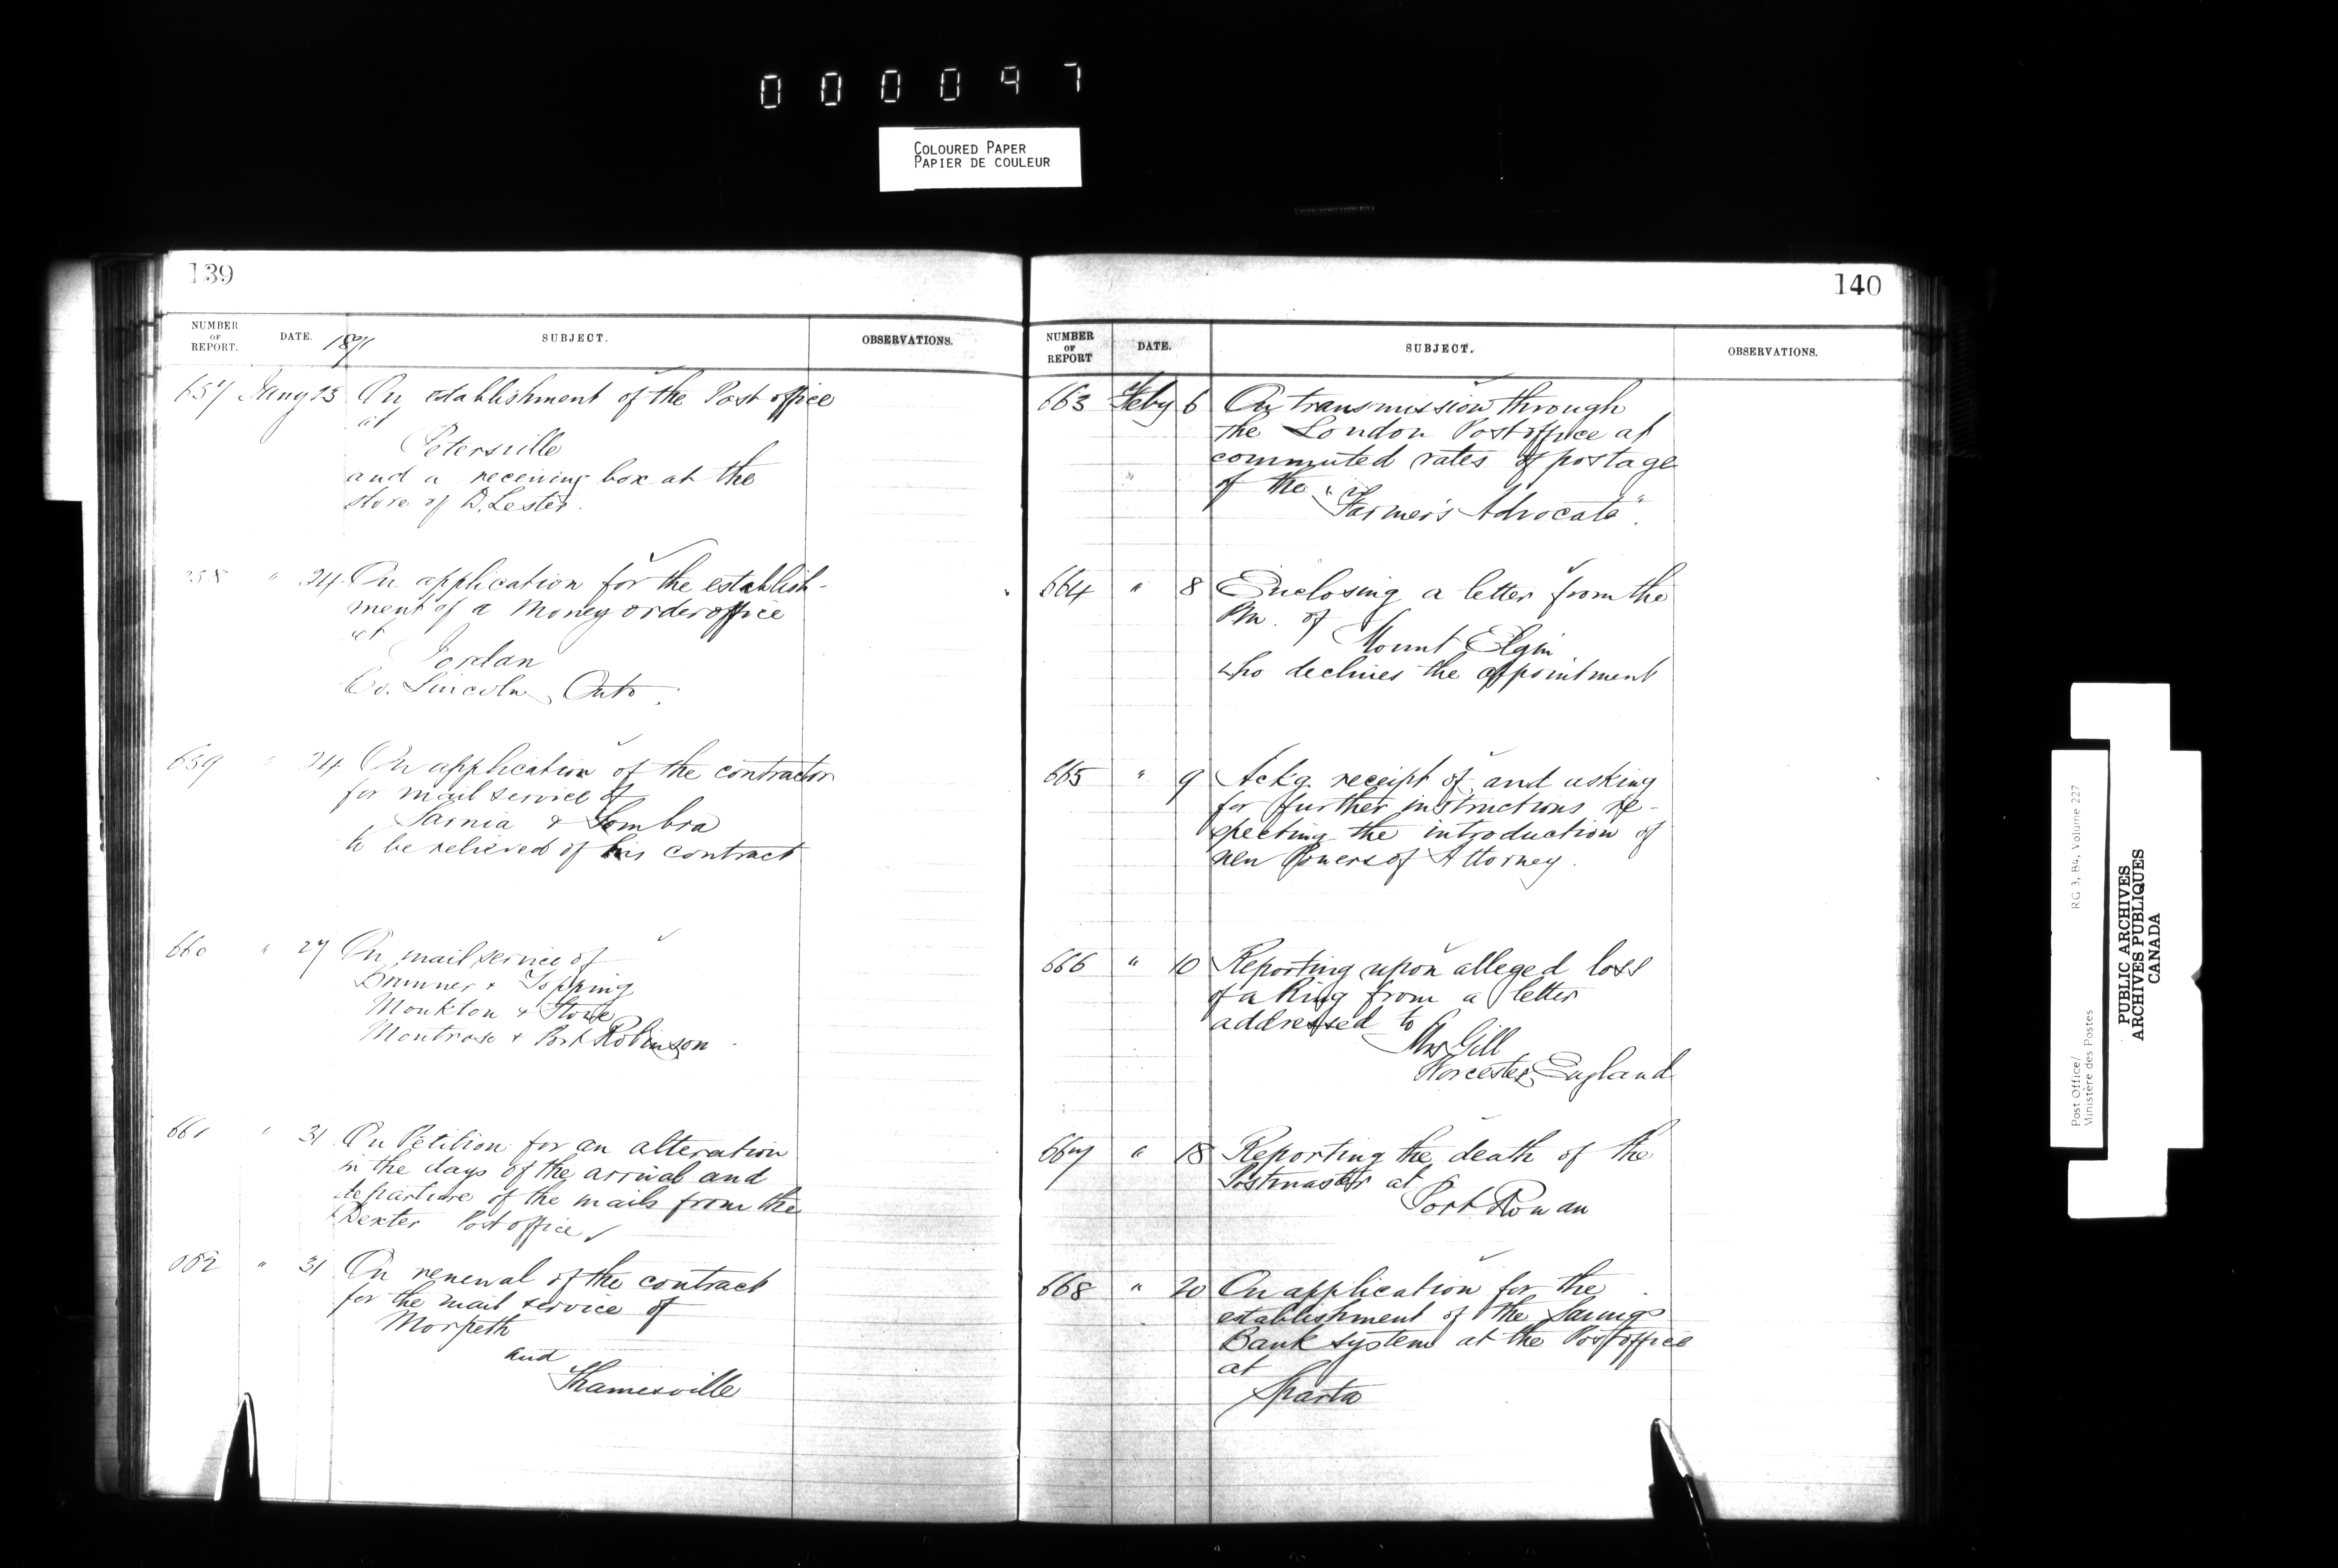 000097
COLOURED PAPER
PAPIER DE COULEUR
139
NUMBER OF REPORT. DATE. 1871 SUBJECT. OBSERVATIONS.
657 Jany 23 On establishment of the Post office
at
Petersville
and a receiving box at the
store of D. Lester.
658 " 24 On application for the establish-
ment of a Money order office
at
Jordan
Co. Lincoln, Onto.
659 " 24 On application of the contractor
for mail service of
Sarnia & Sombra
to be relieved of his contract
660 " 27 On mail service of
Brunner & Topping
Monkton &
Montrose & Port Robinson
661 " 31 On Petition for an alteration
in the days of the arrival and
departure of the mails from the
Dexter Post office
662 " 31 On renewal of the contract
for the mail service of
Morpeth
and
Thamesville
140
NUMBER OF REPORT DATE. SUBJECT. OBSERVATIONS.
663 Feby 6 On transmission through
the London Post office at
commuted rates of postage
of the
"Farmer's Advocate".
664 " 8 Enclosing a letter from the
Pm. of
Mount Elgin
who declines the appointment
665 " 9 Ackg. receipt of, and asking
for further instructions re-
specting the introduction of
new Powers of Attorney.
666 " 10 Reporting upon alleged loss
of a Ring from a letter
addressed to
Mrs Gill
Worcester, England
667 " 18 Reporting the death of the
Postmaster at
Port Rowan
668 " 20 On application for the
establishment of the Savings
Bank system at the Post office
at
Sparta
Post Office/ RG 3, B4, Volume 227
Ministère des Postes
PUBLIC ARCHIVES
ARCHIVES PUBLIQUES
CANADA